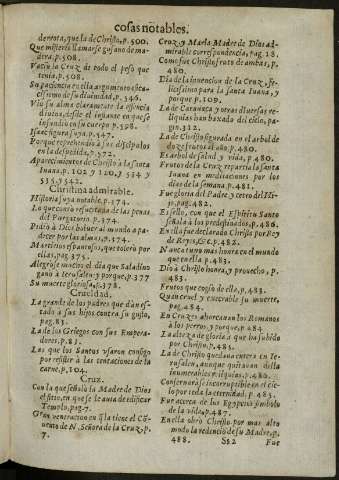 cosas notables.
derrota, que la de Christo, p. 500.
Que misterio llamarse gusano de ma-
dera. p. 508.
Vaciò la Cruz de todo el peso que
tenia. p. 508.
Su paciencia en ella argumento efica-
cissimo de su diuinidad, p. 546.
Viò su alma claramente la essencia
diuina, desde el instante en que se
infundiò en su cuerpo p. 598.
Isac figura suya. p. 547.
Porque reprehendiò a sus discipulos
en la despedida, p. 572.
Aparecimientos de Christo à la santa
Iuana, p. 102 y 120, y 534 y
535, 542.
Christina admirable.
Historia suya notable. p. 374.
Lo que contò resucitada de las penas
del Purgatorio. p. 374.
Pidiò à Dios boluer al mundo a pa-
decer por las almas, p. 374.
Martirios espantosos, que tolerò por
ellas, pag. 375.
Alegrose mucho el dia que Saladino
ganò à Ierusalen; y porque, p. 377
Su muerte gloriosa, p. 378.
Crueldad.
La grande de los padres que dàn es-
tado à sus hijos contra su gusto,
pag. 83.
La de los Griegos con sus Empera-
dores. p. 81.
La que los Santos vsaron consigo
por resistir à las tentaciones de la
carne, p. 104.
Cruz.
Con la que señalò la Madre de Dios
el sitio, en que se le auia de edificar
Templo, pag. 7.
Gran veneracion en q̃ la tiene el Cõ-
uento de N. Señora de la Cruz, p.
7.
Cruz, y Maria Madre de Dios ad-
mirable correspondencia, pag. 18.
Como fue Christo froto de ambas, p.
480.
Dia de la inuencion de la Cruz, fe-
licissimo para la santa Iuana, y
porque p. 109.
La de Carauaca y otras diuersas re-
liquias han baxado del cielo, pa-
gin. 312.
La de Christo figurada en el arbol de
doze frutos al año, p. 480.
Es arbol de salud y vida, p. 480.
Frutos de la Cruz repartiò la santa
Iuana en meditaciones por los
dias de la semana. p. 481.
Fue gloria del Padre y cetro del Hi-
jo, pag. 482.
Es sello, con que el Espiritu Santo
señala à los predestinados, p. 486.
En ella fue declarado Christo por Rey
de Reyes, &c. p. 482.
Nunca tuuo mas honra en el mundo
que en ella. p. 483.
Diò à Christo honra, y prouecho, p.
483.
Frutos que cogiò de ella, p. 483.
Quan cruel y execrable su muerte,
pag. 484.
En Cruzes ahorcauan los Romanos
à los perros, y porque p. 484
La alteza de gloria à que ha subido
por Christo, p. 485.
La de Christo quedarà entera en Ie-
rusalen, aunque quitauan della
inumerables reliquias. p. 480.
Conseruarà se incorruptible en el cie-
lo por toda la eternidad. p. 485.
Fue acerca de los Egypcios simbolo
de la vida, p. 487.
En ella obrò Christo por mas alto
modo la redenciò de su Madre, p.
488.
Ss2
Fue